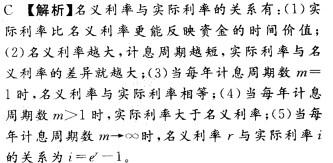 C 【解析】名义利率与实际利率的关系有:(1)实
际利率比名义利率更能反映资金的时间价值;
(2)名义利率越大,计息周期越短,实际利率与名
义利率的差异就越大;(3)当每年计息周期数 m=
1时,名义利率与实际利率相等;(4)当每年计息
周期数 m>1 时,实际利率大于名义利率;(5)当每
年计息周期数 m→∞时,名义利率 r 与实际利率 i
的关系为 i=eʳ-1。